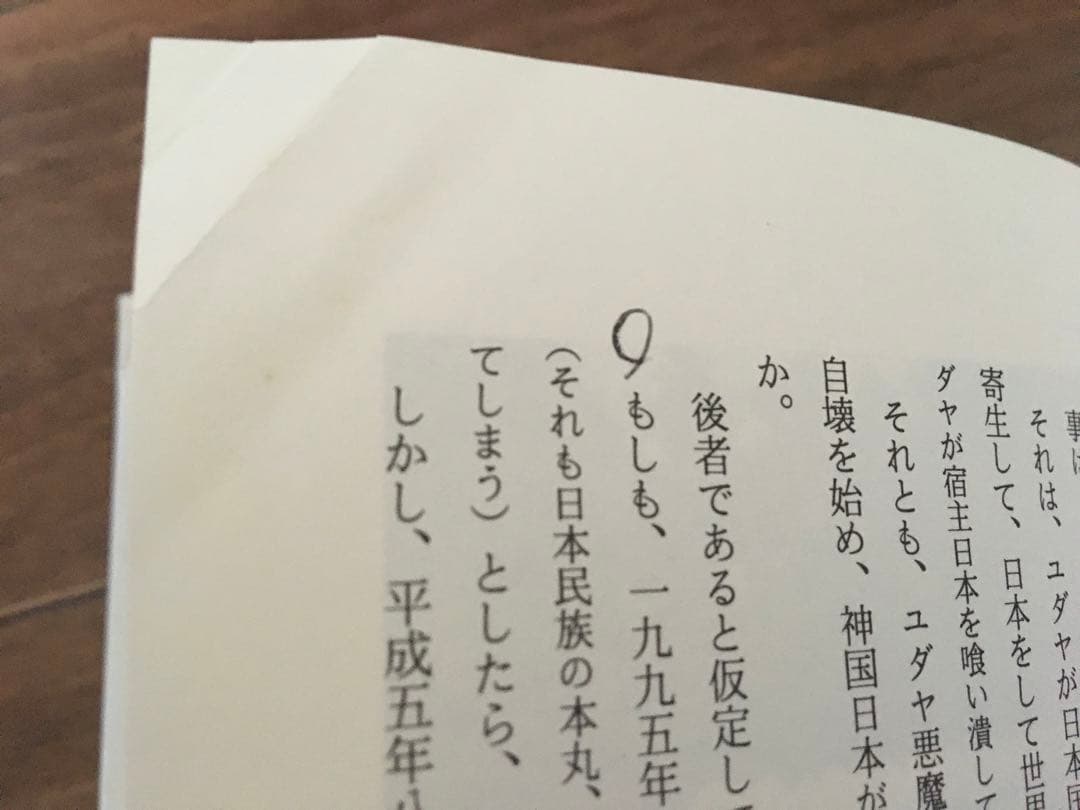 事は
それは、ユダヤが日本民
寄生して、日本をして世界
ダヤが宿主日本を喰い潰して
それとも、ユダヤ悪魔
自壊を始め、神国日本が
か。
後者であると仮定して
もしも、一九九五年
（それも日本民族の本丸、
てしまう）としたら、
しかし、平成五年八